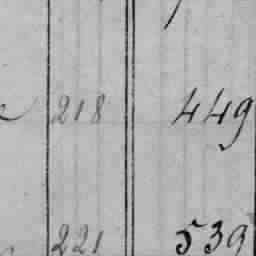 218 449
221 539